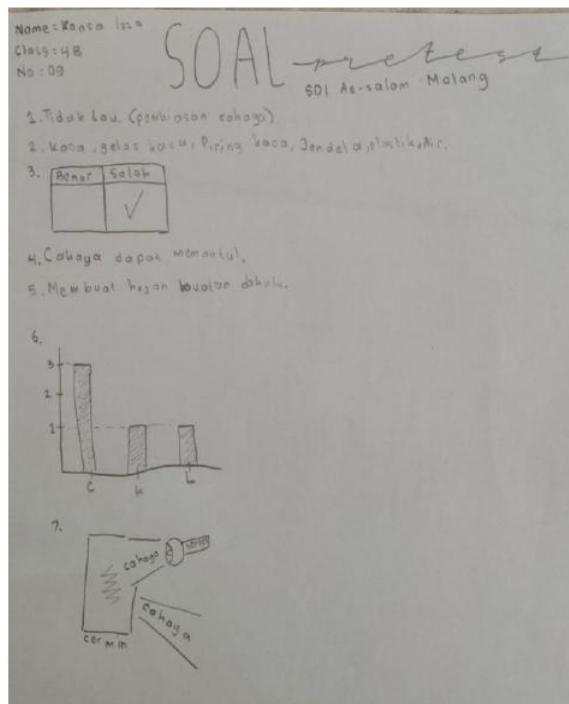 Name : Kansa Izza
Class : 4B
No : 09
SOAL pretest
SDI As-salam Malang
1. Tidak tau. (pembiasan cahaya)
2. Kaca, gelas kaca, Piring kaca, Jendela, plastik, Air.
3. Benar Salah
✓
4. Cahaya dapat memantul.
5. Membuat hujan buatan dahulu.
6.
3
2
1
C K L
7.
cahaya senter
cahaya
cermin